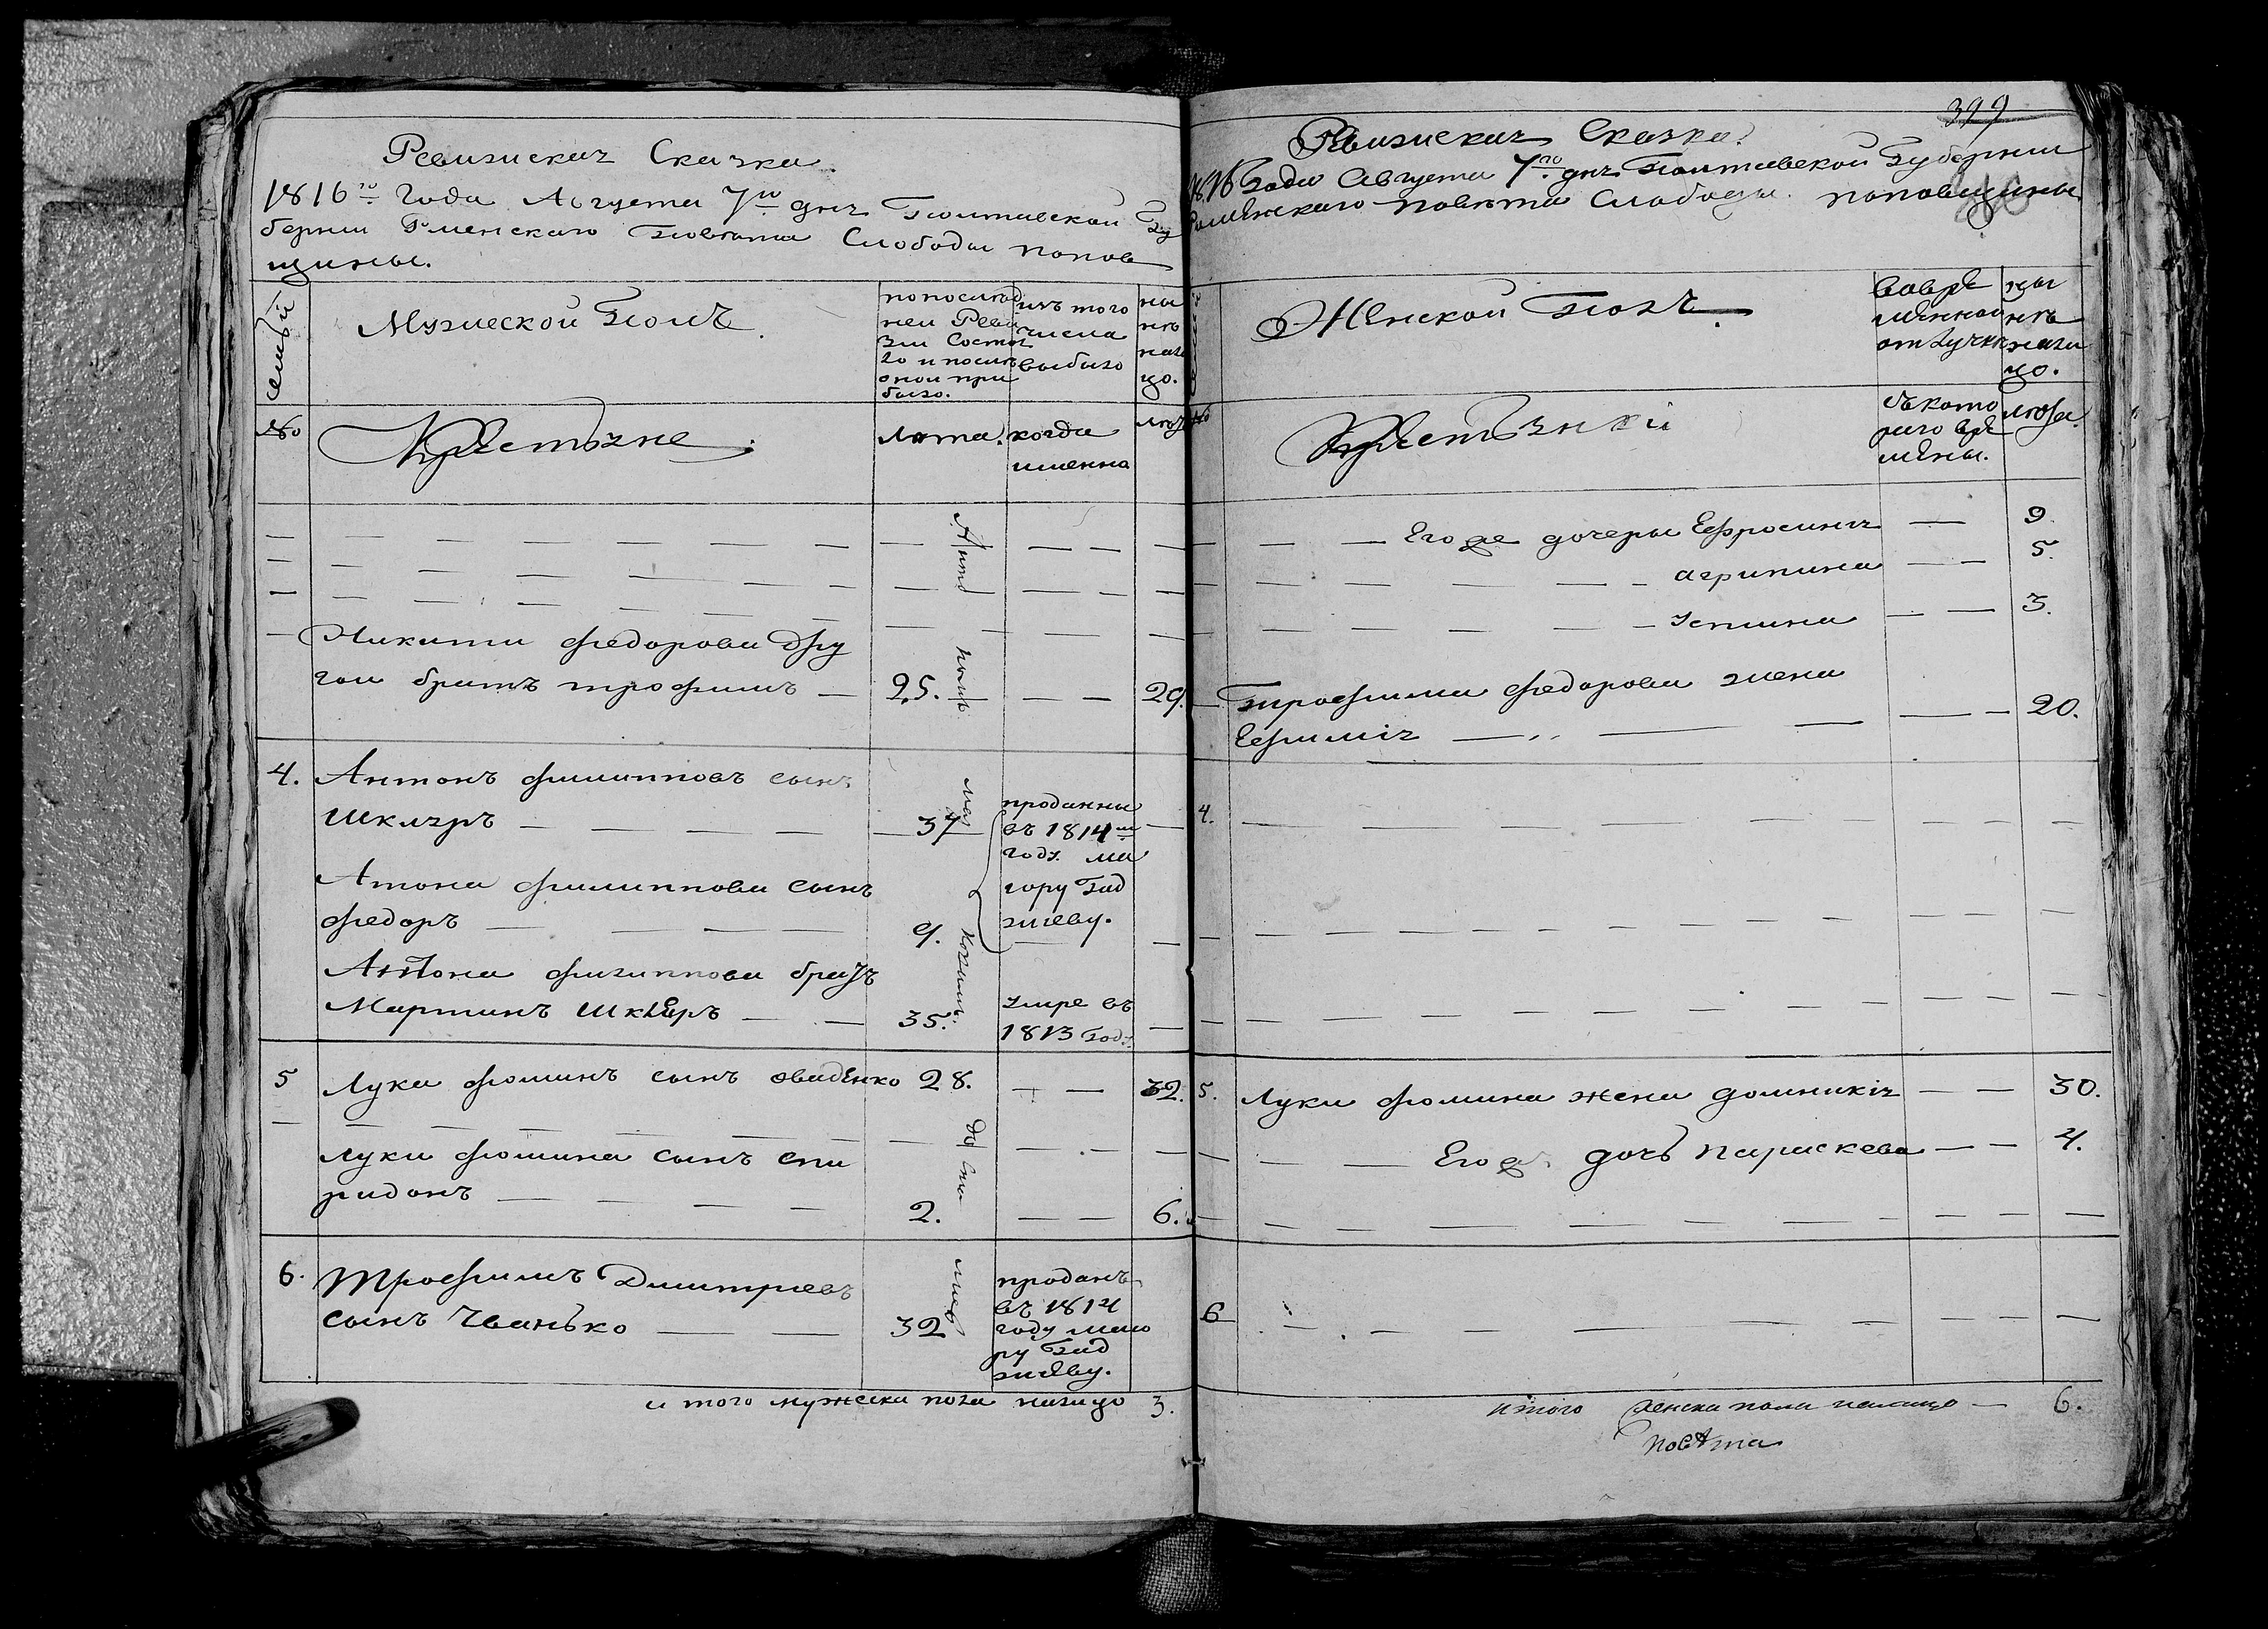 Ревизская Сказка.
1816го Года Августа 7го дня Полтавской Гу
бернии Роменскаго Повѣта Слободы Попов
щины.
семьи
Мужеской Полъ.
по послѣд
ней Реви
зіи Состоя
ло и послѣ
оной при
было.
изъ того
числа
выбыло
ны
нѣ
нали
цо.
№
Крестьяне.
лѣта.
когда
именно
лѣта
Никиты Федорова дру
гой братъ трофимъ — 25. — — 29.
4. Антонъ филипповъ сынъ
Шкляръ — — — — 37 —
проданны
въ 1814м
году. ма
іору Гад
жиеву.
Атона филиппова сынъ
федоръ — — — — 9. —
Антона филиппова братъ
Мартинъ Шкляръ — — 35. —
умре въ
1813 году.
5 Лука фоминъ сынъ 28. — — 32.
Луки фомина сынъ спи
ридонъ — — — — 2. — — 6.
6. трофимъ Дмитріевъ
сынъ Чванько — — 32
проданъ
въ 1814
году маио
ру Гад
жиеву.
и того мужеска пола налицо 3.
399
Ревизская Сказка.
1816 Года Августа 7го дня Полтавской Губернии
Роменскаго Повѣта Слободы. поповщины
Женской Полъ.
Вовре
менной
отлучкѣ
ны
нѣ
нали
цо.
№
Крестьянки
съ кото
раго вре
мены.
лѣта.
— — — Его же дочеры Ефросиния — 9.
— — — — — — агрипина — — 5.
— — — — — — устина — — 3.
трофима федорова жена
Ефимія — — — — — 20.
4. — — — — — — — —
5. Луки фомина жена домникія — — 30.
— — — Его же дочь параскева — — 4.
6 — — — — — — — —
итого женска пола налицо — 6.
повѣта